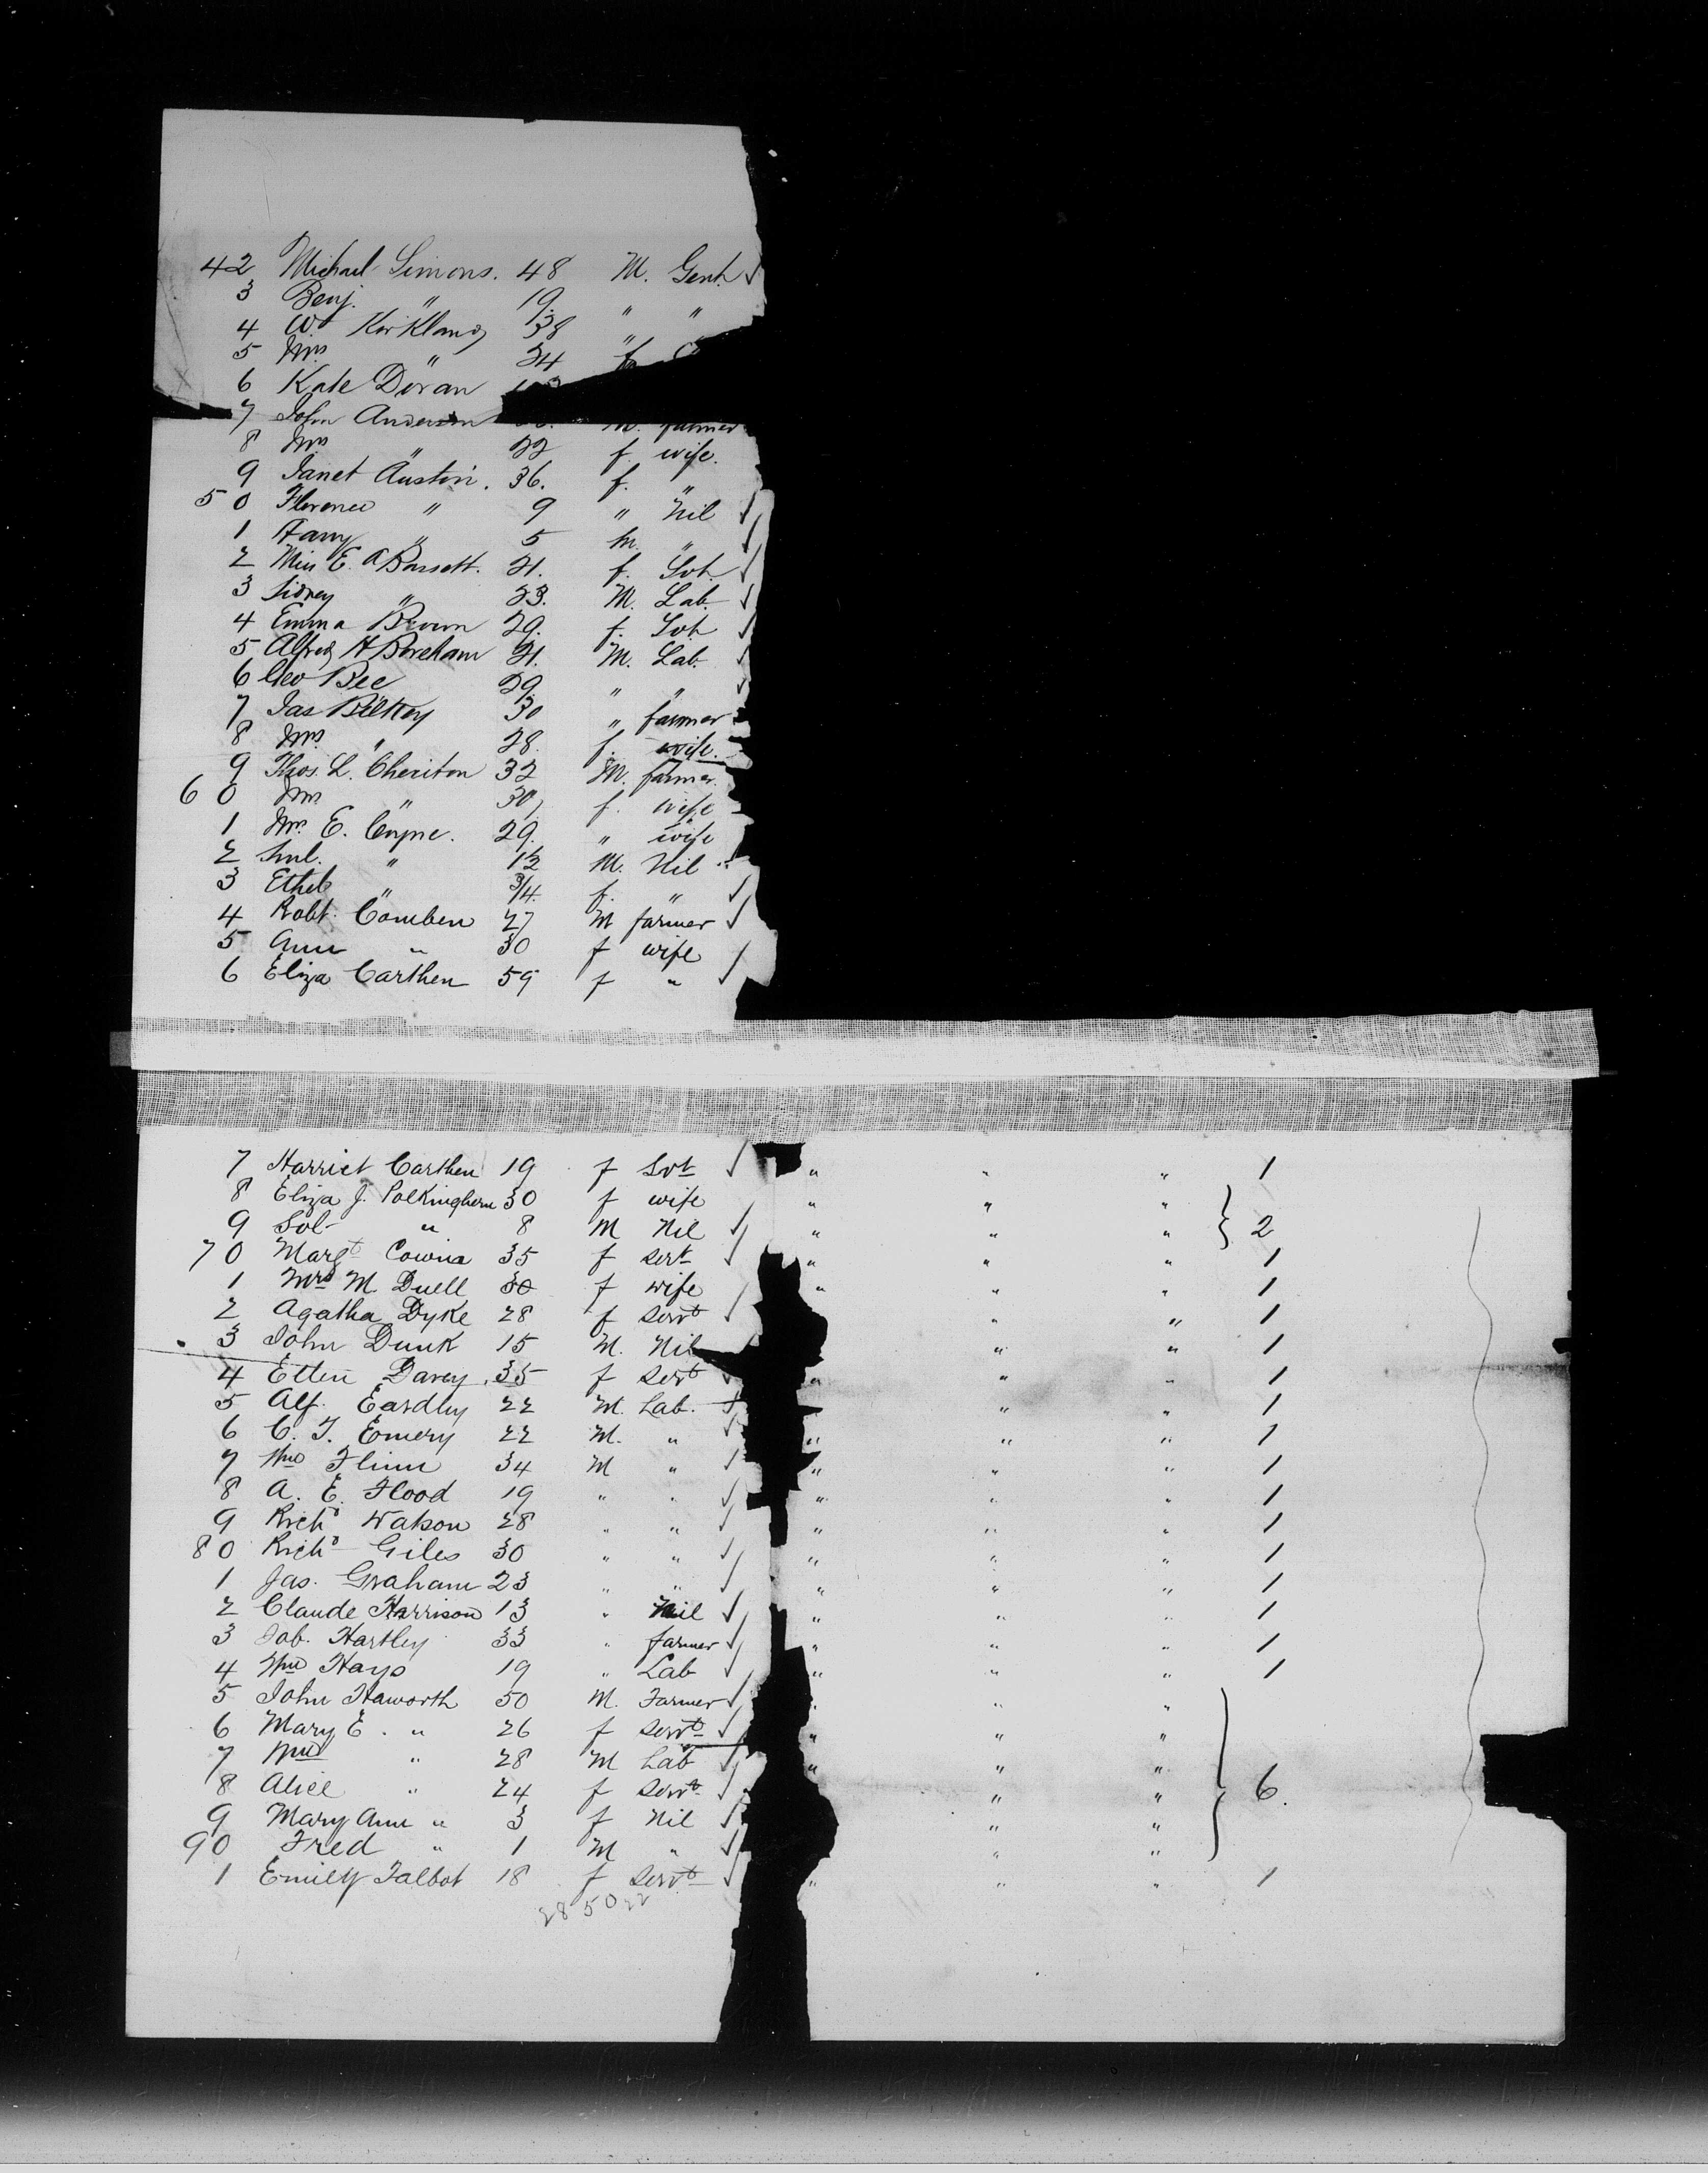 42 Michael Simons. 48 M. Gent.
3 Benj. " 19. " "
4 Wm Kirkland 38 "
5 Mrs " 24 f
6 Kate Doran
7 John Anderson M. farmer
8 Mrs " 22 f. wife.
9 Janet Austin. 36. f. "
50 Florence " 9 " Nil
1 Harry " 5 M. "
2 Miss E. A Bassett. 21. f. Svt.
3 Sidney " 23. M. Lab.
4 Emma Brown 29. f. Svt
5 Alfred H Boreham 21. M. Lab.
6 Geo Bee 29. " "
7 Jas Bilkey 30 " farmer
8 Mrs " 28. f. wife.
9 Thos. L. Cheriton 32 M. farmer.
60 Mrs " 30 f. wife
1 Mrs E. Coyne. 29. " wife
2 " M. Nil
3 Ethel " 3/4. f. "
4 Robt. Comben 27 M farmer
5 Ann " 30 f wife
6 Eliza Carthen 59 f "
7 Harriet Carthen 19 f Svt " " " 1
8 Eliza J. Polkinghern 30 f wife " " "
9 Sol " 8 M Nil " " " 2
70 Margt Cowna 35 f Servt " " " 1
1 Mrs M. Duell 30 f wife " " " 1
2 Agatha Dyke 28 f Servt " " 1
3 John Dunk 15 M. Nil " " 1
4 Ellen Davey 35 f Servt " " " 1
5 Alf. Eardley 22 M. Lab. " " 1
6 C. T. Emery 22 M. " " " " 1
7 Wm Flinn 34 M " " " " 1
8 A. E. Flood 19 " " " " " 1
9 Richd Watson 28 " " " " " 1
80 Richd Giles 30 " " " " " 1
1 Jas. Graham 23 " " " " " 1
2 Claude Harrison 13 " Nil " " " 1
3 Job. Hartley 33 " farmer " " " 1
4 Wm Hays 19 " Lab " " " 1
5 John Haworth 50 M. Farmer " " "
6 Mary E. " 26 f Servt " " "
7 Wm " 28 M Lab " " "
8 Alice " 24 f Servt " " 6.
9 Mary Ann " 3 f Nil " "
90 Fred " 1 M " " "
1 Emily Talbot 18 f Servt " " " 1
285022